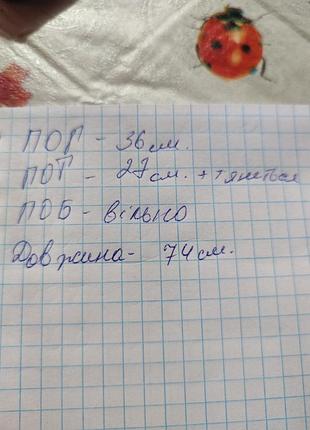 ПОГ - 36 см.
ПОТ - 27 см. + тянеться
ПОБ - вільно
Довжина - 74 см.